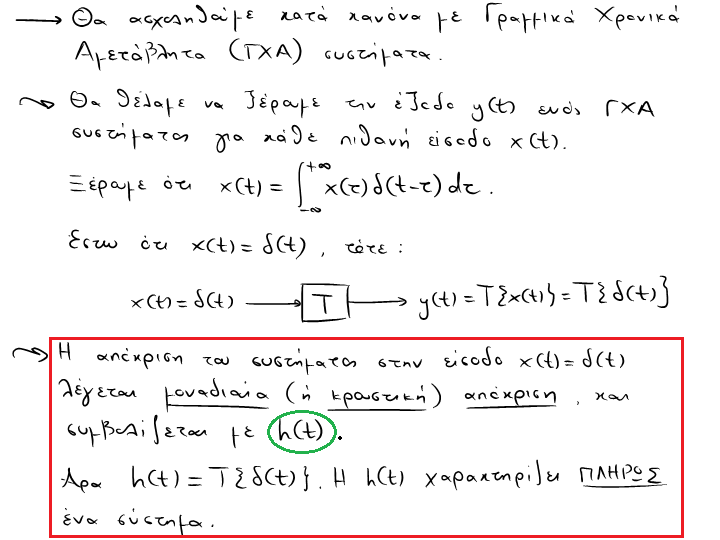 → Θα ασχοληθούμε κατά κανόνα με Γραμμικά Χρονικά
Αμετάβλητα (ΓΧΑ) συστήματα.
Θα θέλαμε να ξέραμε την έξοδο y(t) ενός ΓΧΑ
συστήματος για κάθε πιθανή είσοδο x(t).
Ξέρουμε ότι x(t) = ∫_{-∞}^{+∞} x(τ)δ(t-τ)dτ.
Έστω ότι x(t) = δ(t), τότε:
x(t) = δ(t) → T → y(t) = T{x(t)} = T{δ(t)}
Η απόκριση του συστήματος στην είσοδο x(t) = δ(t)
λέγεται μοναδιαία (ή κρουστική) απόκριση, και
συμβολίζεται με h(t).
Άρα h(t) = T{δ(t)}. Η h(t) χαρακτηρίζει ΠΛΗΡΩΣ
ένα σύστημα.